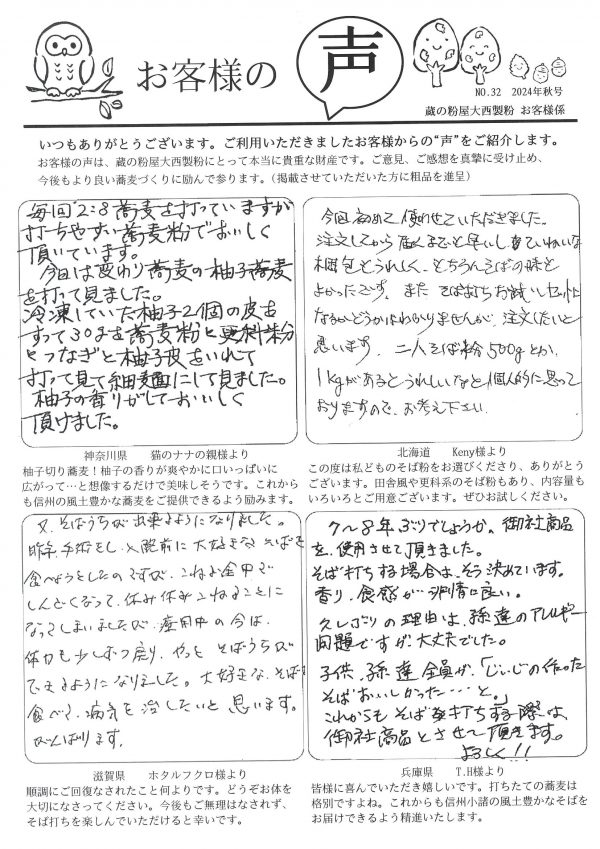 お客様の
声
NO.32 2024年秋号
蔵の粉屋大西製粉 お客様係
いつもありがとうございます。ご利用いただきましたお客様からの“声”をご紹介します。
お客様の声は、蔵の粉屋大西製粉にとって本当に貴重な財産です。ご意見、ご感想を真摯に受け止め、
今後もより良い蕎麦づくりに励んで参ります。（掲載させていただいた方に粗品を進呈）
毎回2:8蕎麦を打っていますが
打ちやすい蕎麦粉でおいしく
頂いています。
今日は変わり蕎麦の柚子蕎麦
を打って見ました。
冷凍していた柚子2個の皮を
すって30gを蕎麦粉と更科粉
とつなぎと柚子皮をいれて
打って見て細麺にして見ました。
柚子の香りがしておいしく
頂けました。
神奈川県 猫のナナの親様より
柚子切り蕎麦！柚子の香りが爽やかに口いっぱいに
広がって…と想像するだけで美味しそうです。これから
も信州の風土豊かな蕎麦をご提供できるよう励みます。
今回初めて使わせていただきました。
注文してから届くまでも早いし、ていねいな
梱包もうれしく、もちろんそばの味も
よかったです。また そば打ちお試しセットに
なるかどうかはわかりませんが、注文したいと
思います。二八そば粉500gとか、
1kgがあるとうれしいなと個人的に思って
おりますので、お考え下さい。
北海道 Keny様より
この度は私どものそば粉をお選びくださり、ありがとう
ございます。田舎風や更科系のそば粉もあり、内容量も
いろいろとご用意ございます。ぜひお試しください。
又、そばうちが出来るようになりました。
昨年手術をし、入院前に大好きなそばを
食べようとしたのですが、こねる途中で
しんどくなって、休み休みこねることに
なってしまいましたが、療用中の今は、
体力も少しずつ戻り、やっと そばうちが
できるようになりました。大好きな、そばを
食べて、病気を治したいと思います。
がんばります。
滋賀県 ホタルフクロ様より
順調にご回復なされたこと何よりです。どうぞお体を
大切になさってください。今後もご無理はなされず、
そば打ちを楽しんでいただけると幸いです。
7～8年ぶりでしょうか。御社商品
を、使用させて頂きました。
そば打ちする場合は、そう決めています。
香り、食感が非常に良い。
久しぶりの理由は、孫達のアレルギー
問題ですが、大丈夫でした。
子供、孫達 全員が、「じいじの作った
そばおいしかった・・・と。」
これからも そばを打ちする際は、
御社商品とさせて頂きます。
よろしく!!
兵庫県 T.H様より
皆様に喜んでいただき嬉しいです。打ちたての蕎麦は
格別ですよね。これからも信州小諸の風土豊かなそばを
お届けできるよう精進いたします。